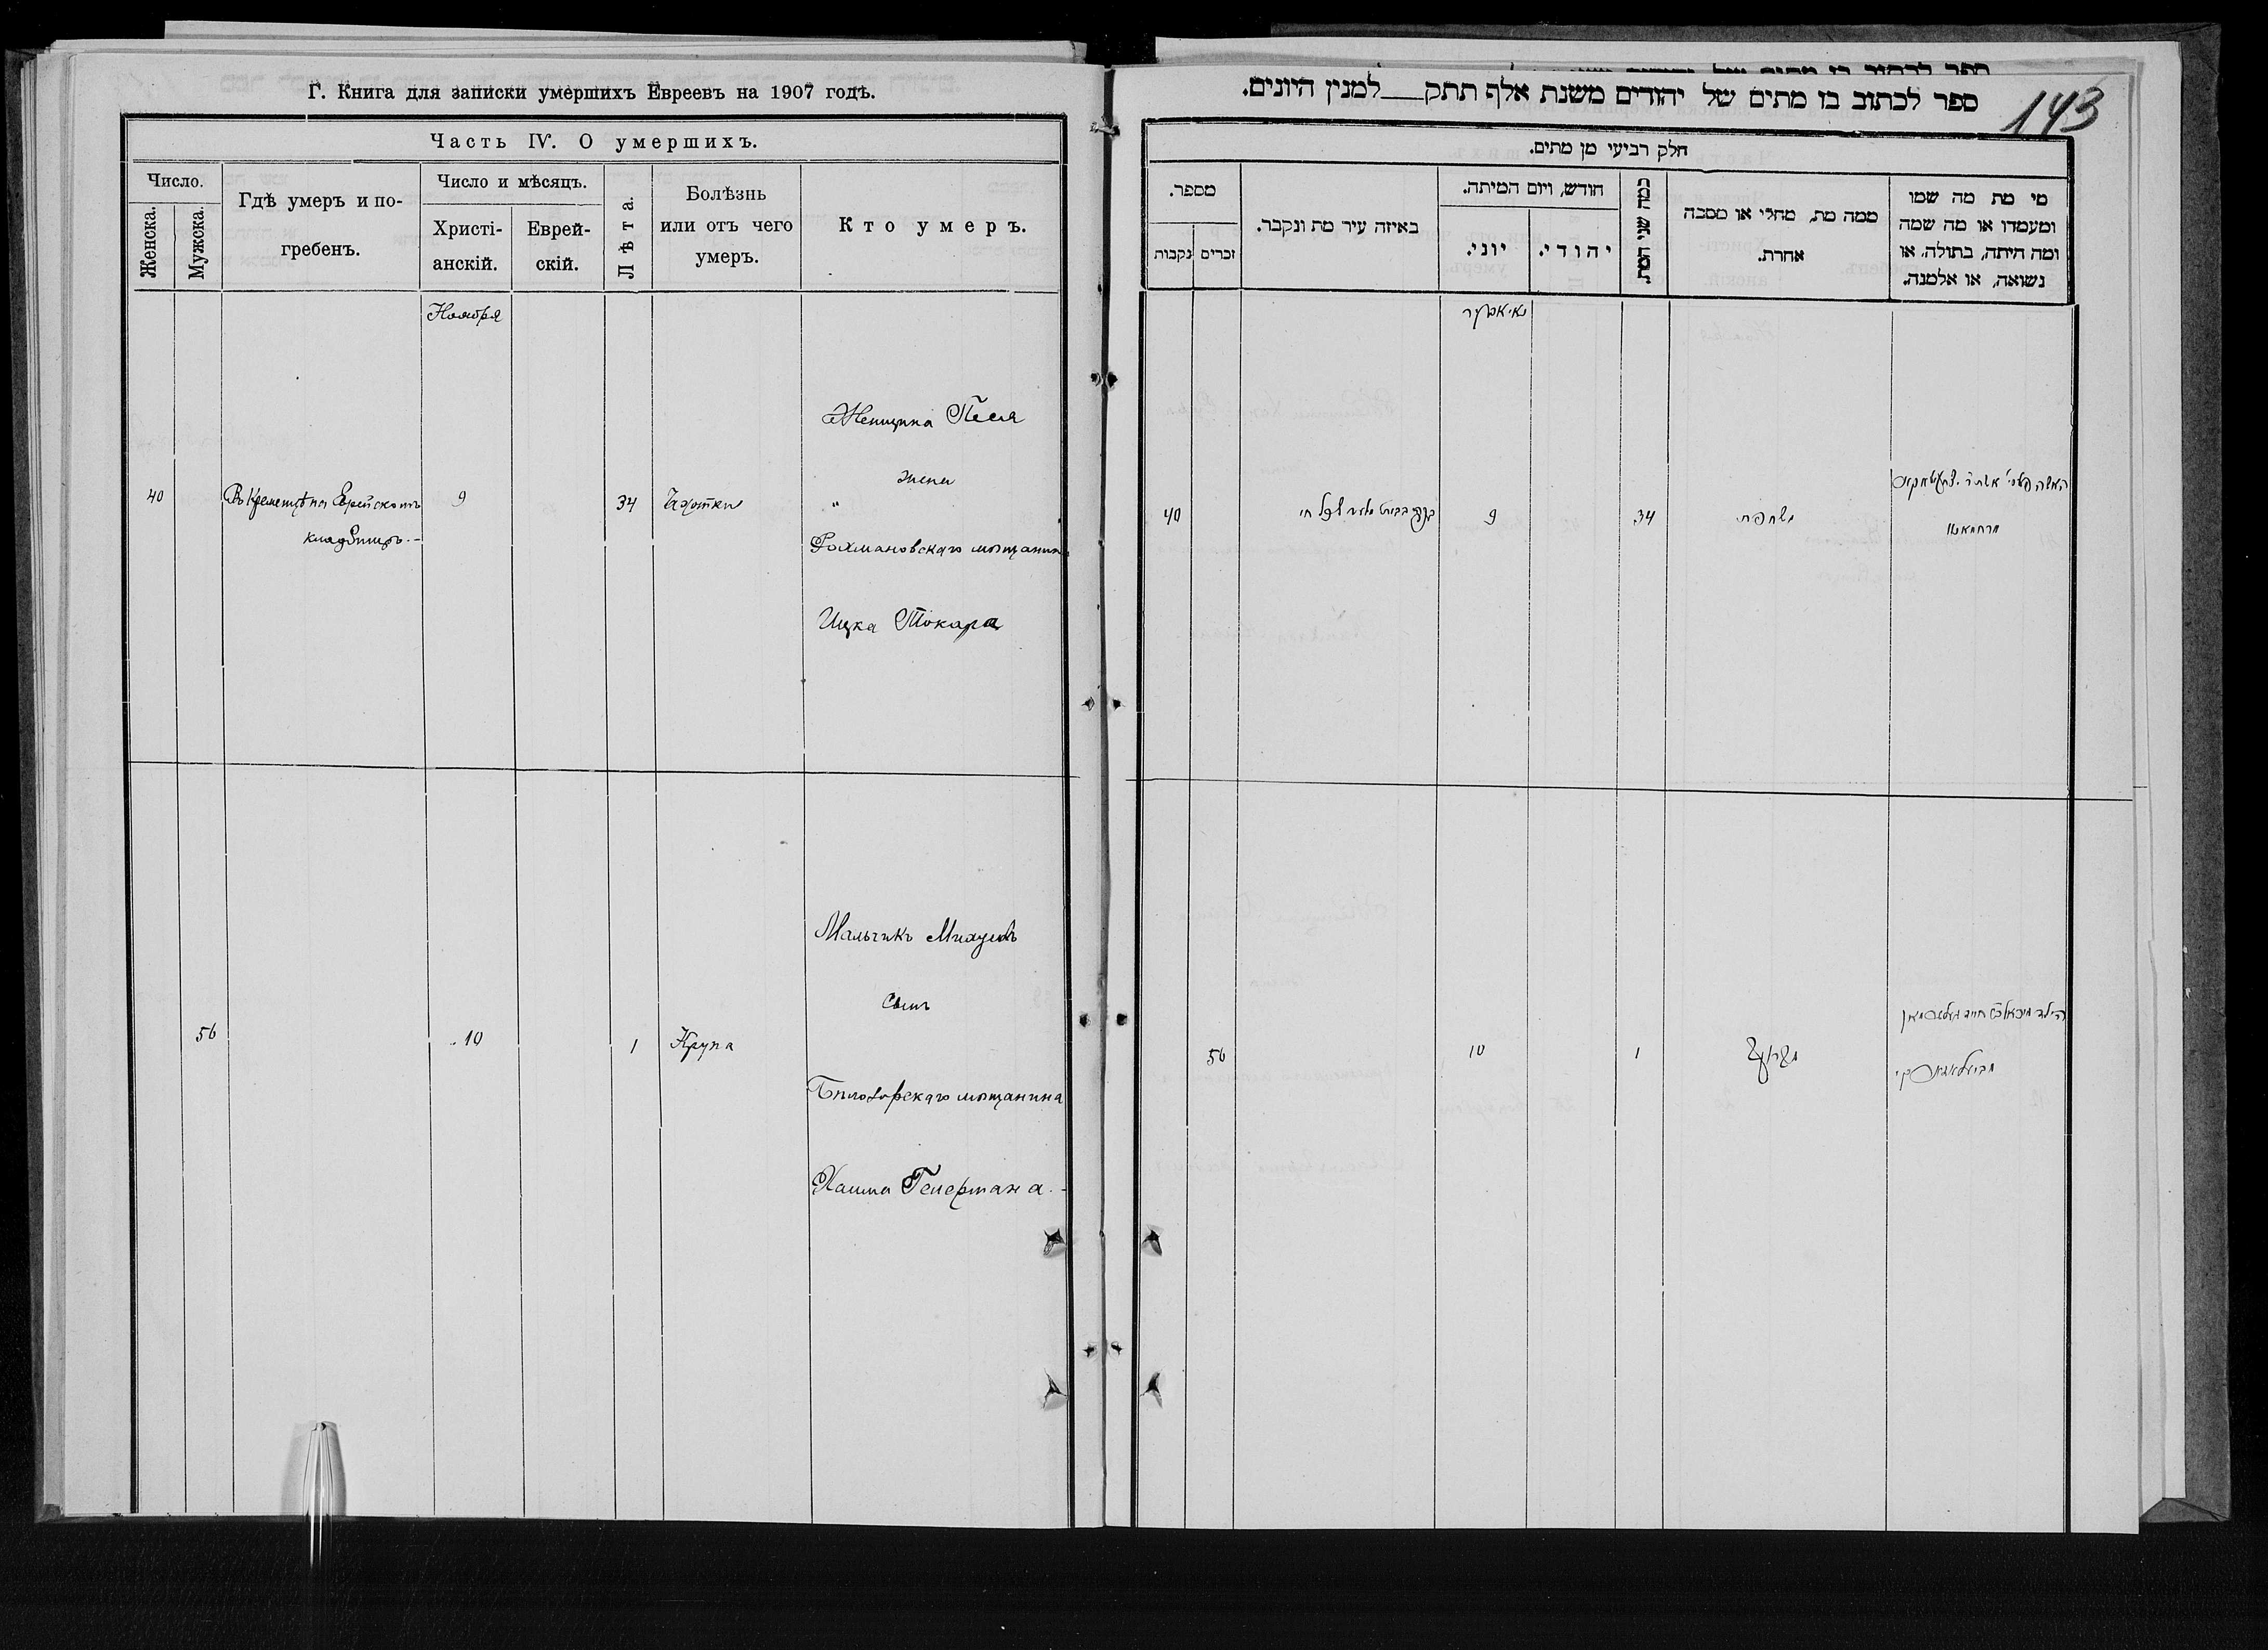 Г. Книга для записки умершихъ Евреевъ на 1907 годъ.
Часть IV. О умершихъ.
Число.
Женска.
Мужска.
Гдѣ умеръ и по-
гребенъ.
Число и мѣсяцъ.
Христі-
анскій.
Еврей-
скій.
Лѣта.
Болѣзнь
или отъ чего
умеръ.
Кто умеръ.
Ноября
40
Въ Кременцѣ на Еврейскомъ
кладбищѣ.-
9
34
Чахотки
Женщина Песя
жена
"
Рахмановскаго мѣщанина
Ицка Токара
56
10
1
Крупа
Мальчикъ
Сынъ
Бѣлозорскаго мѣщанина
Хаима Гелермана.-
ספר לכתוב בו מתים של יהודים משנת אלף תתק למנין היונים.
143
חלק רביעי מן מתים.
מספר.
נקבות
זכרים
באיזה עיר מת ונקבר.
חודש, ויום המיתה.
יוני.
יהודי.
כמה שני המת.
ממה מת, מחלי או מסבה
אחרת.
מי מת מה שמו
ומעמדו או מה שמה
ומה היתה, בתולה, או
נשואה, או אלמנה.
40
9
34
האשה
56
10
1
הילד